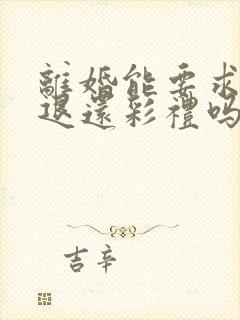 離婚能要求
退還彩禮吗
吉辛